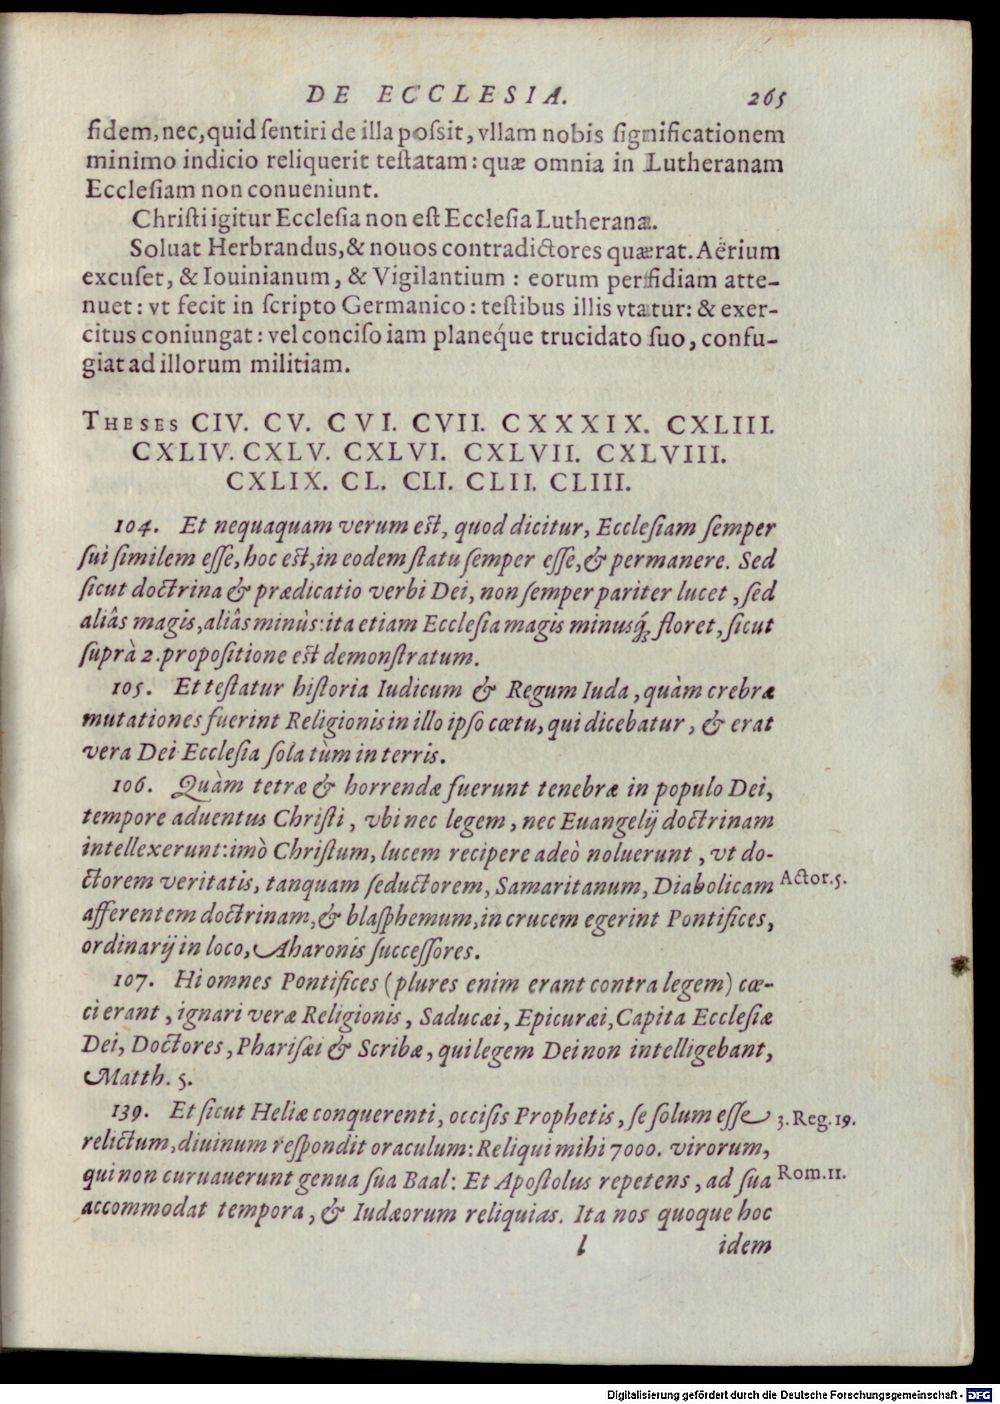 DE ECCLESIA. 265
fidem, nec, quid sentiri de illa possit, vllam nobis significationem
minimo indicio reliquerit testatam: quæ omnia in Lutheranam
Ecclesiam non conueniunt.
Christi igitur Ecclesia non est Ecclesia Lutherana.
Soluat Herbrandus, & nouos contradictores quærat. Aërium
excuset, & Iouinianum, & Vigilantium : eorum perfidiam atte-
nuet: vt fecit in scripto Germanico: testibus illis vtatur: & exer-
citus coniungat: vel conciso iam planeq́ue trucidato suo, confu-
giat ad illorum militiam.
THESES CIV. CV. CVI. CVII. CXXXIX. CXLIII.
CXLIV. CXLV. CXLVI. CXLVII. CXLVIII.
CXLIX. CL. CLI. CLII. CLIII.
104. Et nequaquam verum est, quod dicitur, Ecclesiam semper
sui similem esse, hoc est, in eodem statu semper esse, & permanere. Sed
sicut doctrina & prædicatio verbi Dei, non semper pariter lucet, sed
aliâs magis, aliâs minùs: ita etiam Ecclesia magis minusq́; floret, sicut
suprà 2. propositione est demonstratum.
105. Et testatur historia Iudicum & Regum Iuda, quàm crebræ
mutationes fuerint Religionis in illo ipso cœtu, qui dicebatur, & erat
vera Dei Ecclesia sola tùm in terris.
106. Quàm tetræ & horrendæ fuerunt tenebræ in populo Dei,
tempore aduentus Christi, vbi nec legem, nec Euangelij doctrinam
intellexerunt: imò Christum, lucem recipere adeò noluerunt, vt do-
ctorem veritatis, tanquam seductorem, Samaritanum, Diabolicam
Actor. 5.
afferentem doctrinam, & blasphemum, in crucem egerint Pontifices,
ordinarij in loco, Aharonis successores.
107. Hi omnes Pontifices (plures enim erant contra legem) cæ-
ci erant, ignari veræ Religionis, Saducæi, Epicuræi, Capita Ecclesiæ
Dei, Doctores, Pharisæi & Scribæ, qui legem Dei non intelligebant,
Matth. 5.
139. Et sicut Heliæ conquerenti, occisis Prophetis, se solum esse
3. Reg. 19.
relictum, diuinum respondit oraculum: Reliqui mihi 7000. virorum,
qui non curuauerunt genua sua Baal: Et Apostolus repetens, ad sua
Rom. 11.
accommodat tempora, & Iudæorum reliquias. Ita nos quoque hoc
l idem
Digitalisierung gefördert durch die Deutsche Forschungsgemeinschaft - DFG